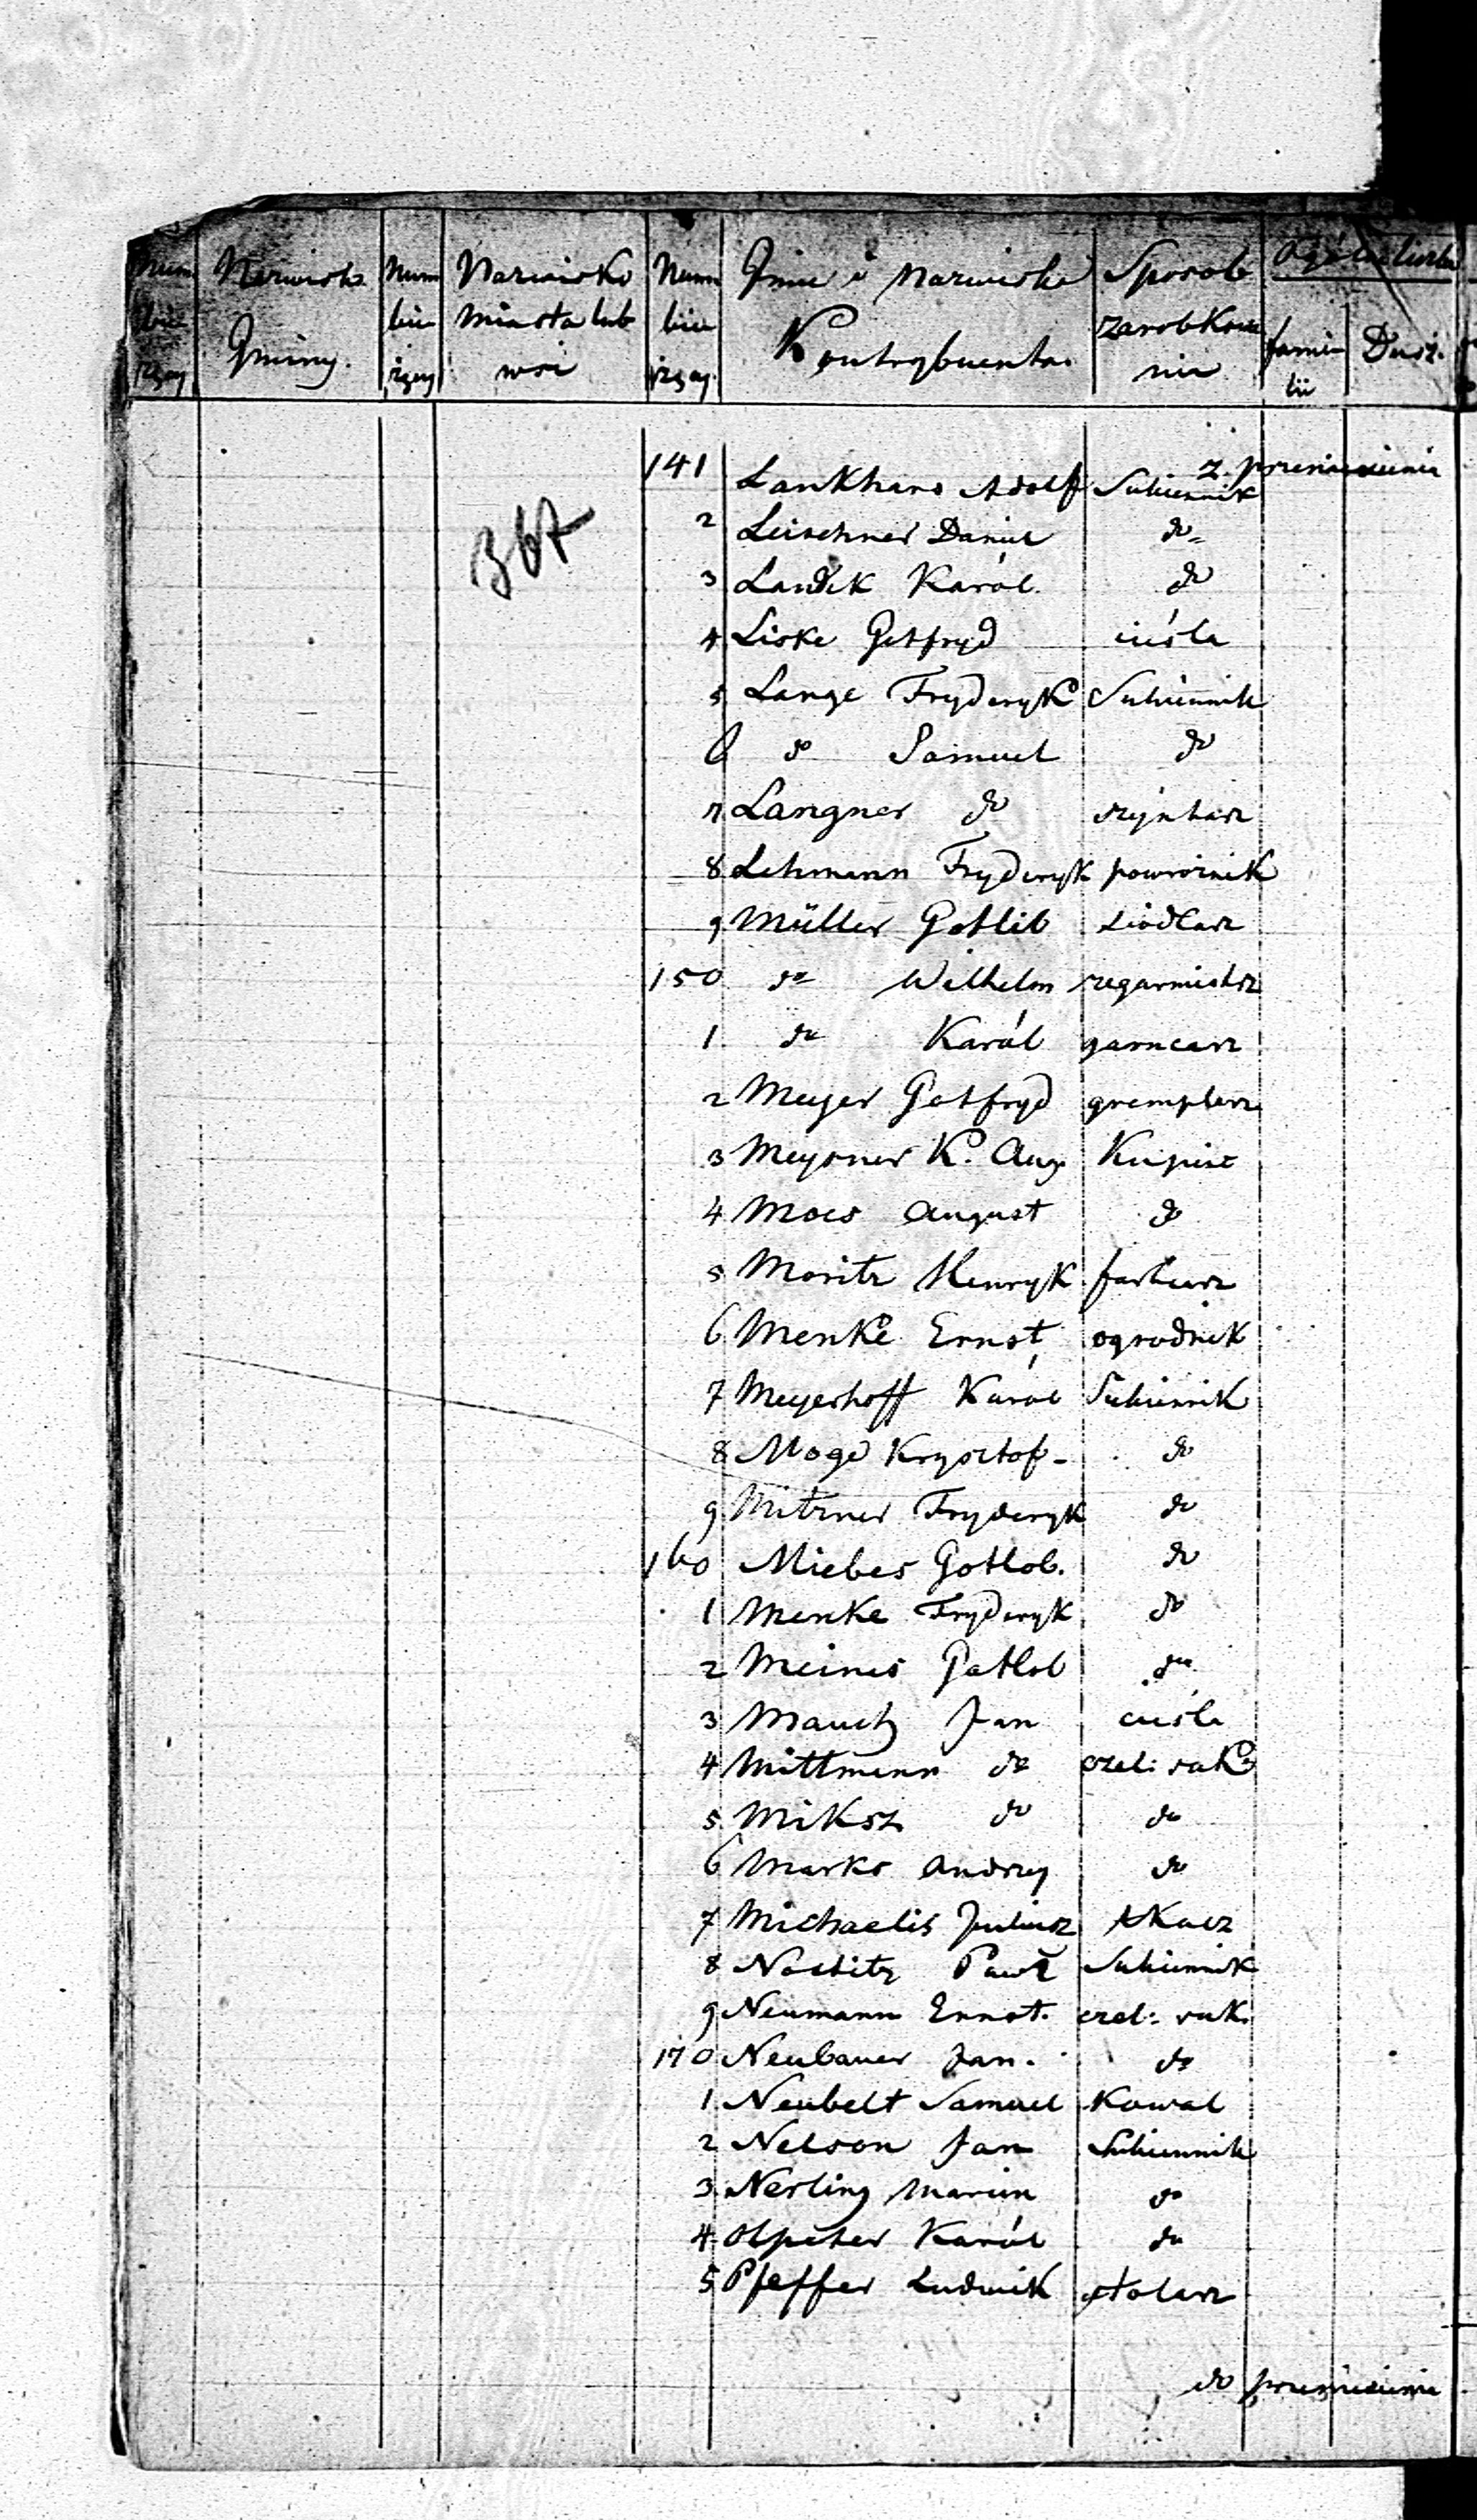 Num Nazwisko Num Nazwisko Num Imie i Nazwisko Sposób Ogólna liczba
bie Gminy. bie Miasta lub bie Kontrybuenta. zarobkowa fami Dusz.
żący żący wsi żący nia lii
z przeniesienia
141 Lankhans Adolf Sukiennik
367
2 Leischner Daniel do
3 Landek Karól. do
4 Liske Gotfryd cieśla
5 Lange Fryderyk Sukiennik
6 do Samuel do
7 Langner do szynkarz
8 Lehmann Fryderyk powroźnik
9 Müller Gotlib siodlarz
150 do Wilhelm zegarmistrz
1 do Karól garncarz
2 Meyer Gotfryd gremplarz
3 Meysner K. Aug. Kupiec
4 Moes August do
5 Moritz Henryk farbiarz
6 Menke Ernst ogrodnik
7 Meyerhoff Karól Sukiennik
8 Moge Krysztof do
9 Mitzner Fryderyk do
160 Miebes Gotlob. do
1 Menke Fryderyk do
2 Meines Gotlob do
3 Mauch Jan cieśla
4 Mittmann do czel: suk.
5 Miksz do do
6 Marks Andrzy do
7 Michaelis Juliusz tkacz
8 Nostitz Paweł Sukiennik
9 Neumann Ernst. czel: suk.
170 Neubauer Jan. do
1 Neubelt Samuel Kowal
2 Nelson Jan Sukiennik
3 Nerling Marcin do
4 Olpeter Karól do
5 Pfeffer Ludwik stolarz
do przeniesienia